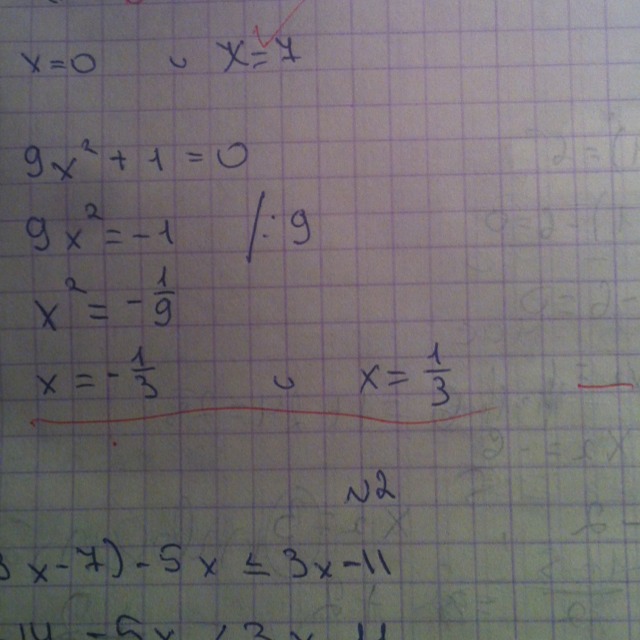 x=0 ∪ x=1
9x²+1=0
9x²=-1 /:9
x²=-1/9
x=-1/3 ∪ x=1/3
N2
x-7)-5x=3x-11